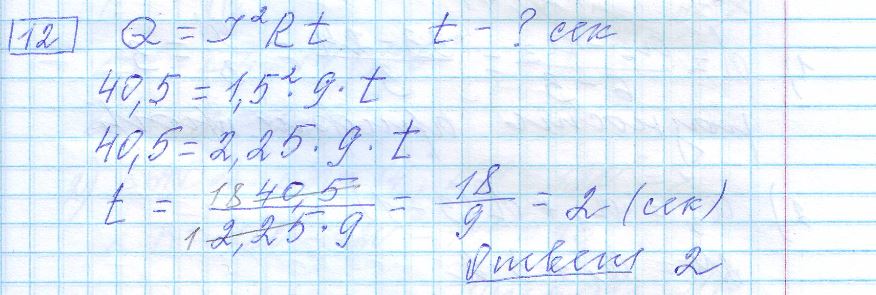 12 Q = I²Rt t - ? сек
40,5 = 1,5² · 9 · t
40,5 = 2,25 · 9 · t
t = 18 40,5 / 1 2,25 · 9 = 18 / 9 = 2 (сек)
Ответ 2